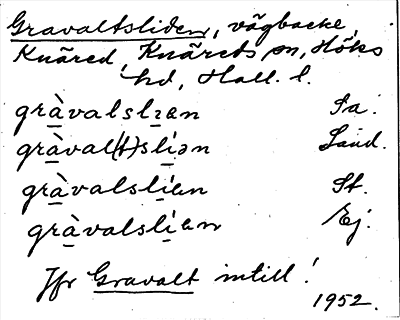 Gravaltsliden, vägbacke,
Knäred, Knäreds sn, Höks
hd, Hall. l.
gràvalslıɛn Ia.
gràval(t)slìən Land.
gràvalslìɛn St.
gràvalslìɛn Ej.
Jfr Gravalt intill!
1952.